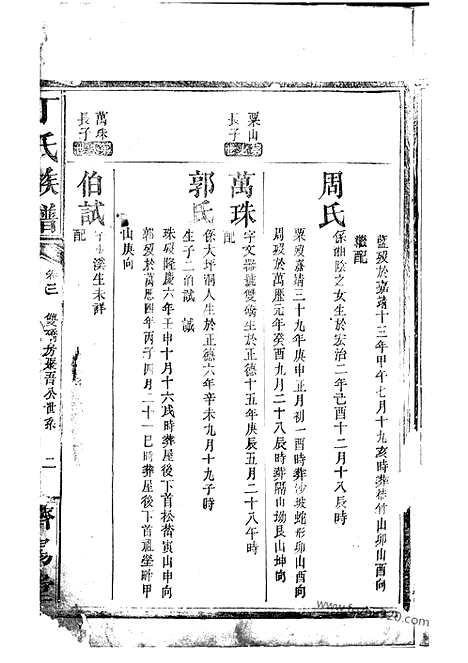 藍歿於嘉靖十三年甲午七月十九亥時葬株竹山卯山酉向
繼配
周氏
係曲陰之女生於宏治二年己酉十二月十八辰時
粟歿嘉靖三十九年庚申正月初一酉時葬沙坡蛇形卯山酉向
周歿於萬歷元年癸酉九月二十八辰時葬隔山坳艮山坤向
粟山
長子
萬珠
字文器號雙磷生於正德十五年庚辰五月二十八午時
配
郭氏
係大坪洞人生於正德六年辛未九月十九子時
生子二 伯試 誠
珠歿隆慶六年壬申十月十六戌時葬屋後下首松蒈寅山申向
郭歿於萬歷四年丙子四月二十一巳時葬屋後下首 甲
山庚向
萬珠
長子
伯試
字 溪生未詳
配
丁氏族譜
卷三
雙 房聚吾公世系
二
濟陽堂